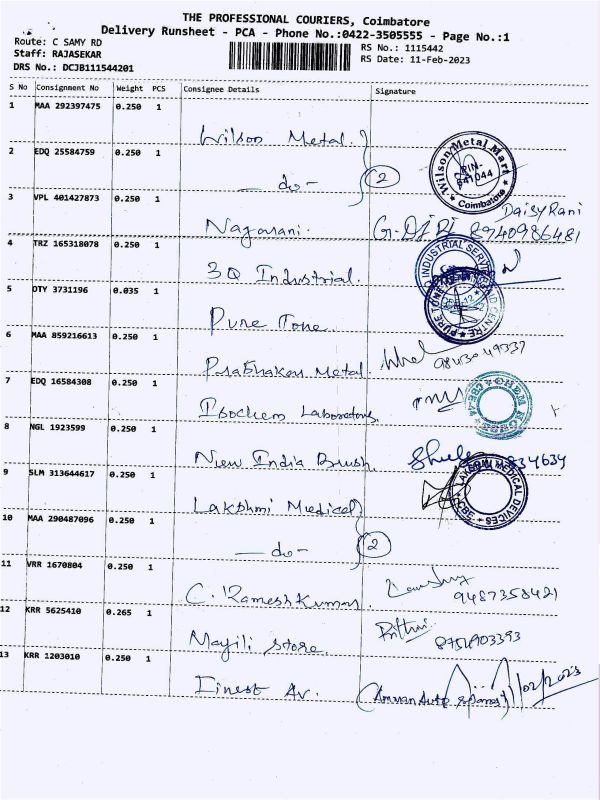 THE PROFESSIONAL COURIERS, Coimbatore
Delivery Runsheet - PCA - Phone No.:0422-3505555 - Page No.:1
Route: C SAMY RD
Staff: RAJASEKAR
DRS No.: DCJB111544201
RS No.: 1115442
RS Date: 11-Feb-2023
S No Consignment No Weight PCS Consignee Details Signature
1 MAA 292397475 0.250 1 Wilson Metal.
2 EDQ 25584759 0.250 1 — do — 2
Wilson Metal Mart PIN- 641044 Coimbatore
3 VPL 401427873 0.250 1 Nagarani. Daisy Rani
8940986481
4 TRZ 165318078 0.250 1 3Q Industrial.
INDUSTRIAL SERVICE
5 OTY 3731196 0.035 1 Pure Tone
PURE TONE CENTRE
6 MAA 859216613 0.250 1 Prabhakar Metal. 9843049337
7 EDQ 16584308 0.250 1 Isochem Laboratories
8 NGL 1923599 0.250 1 New India Brush
9 SLM 313644617 0.250 1 Lakshmi Medical
LAKSHMI MEDICAL DEVICES
10 MAA 290487096 0.250 1 — do — 2
11 VRR 1670804 0.250 1 C. Ramesh Kumar. 9487358421
12 KRR 5625410 0.265 1 Mayili Store
13 KRR 1203010 0.250 1 Finest Av. 11/02/2023